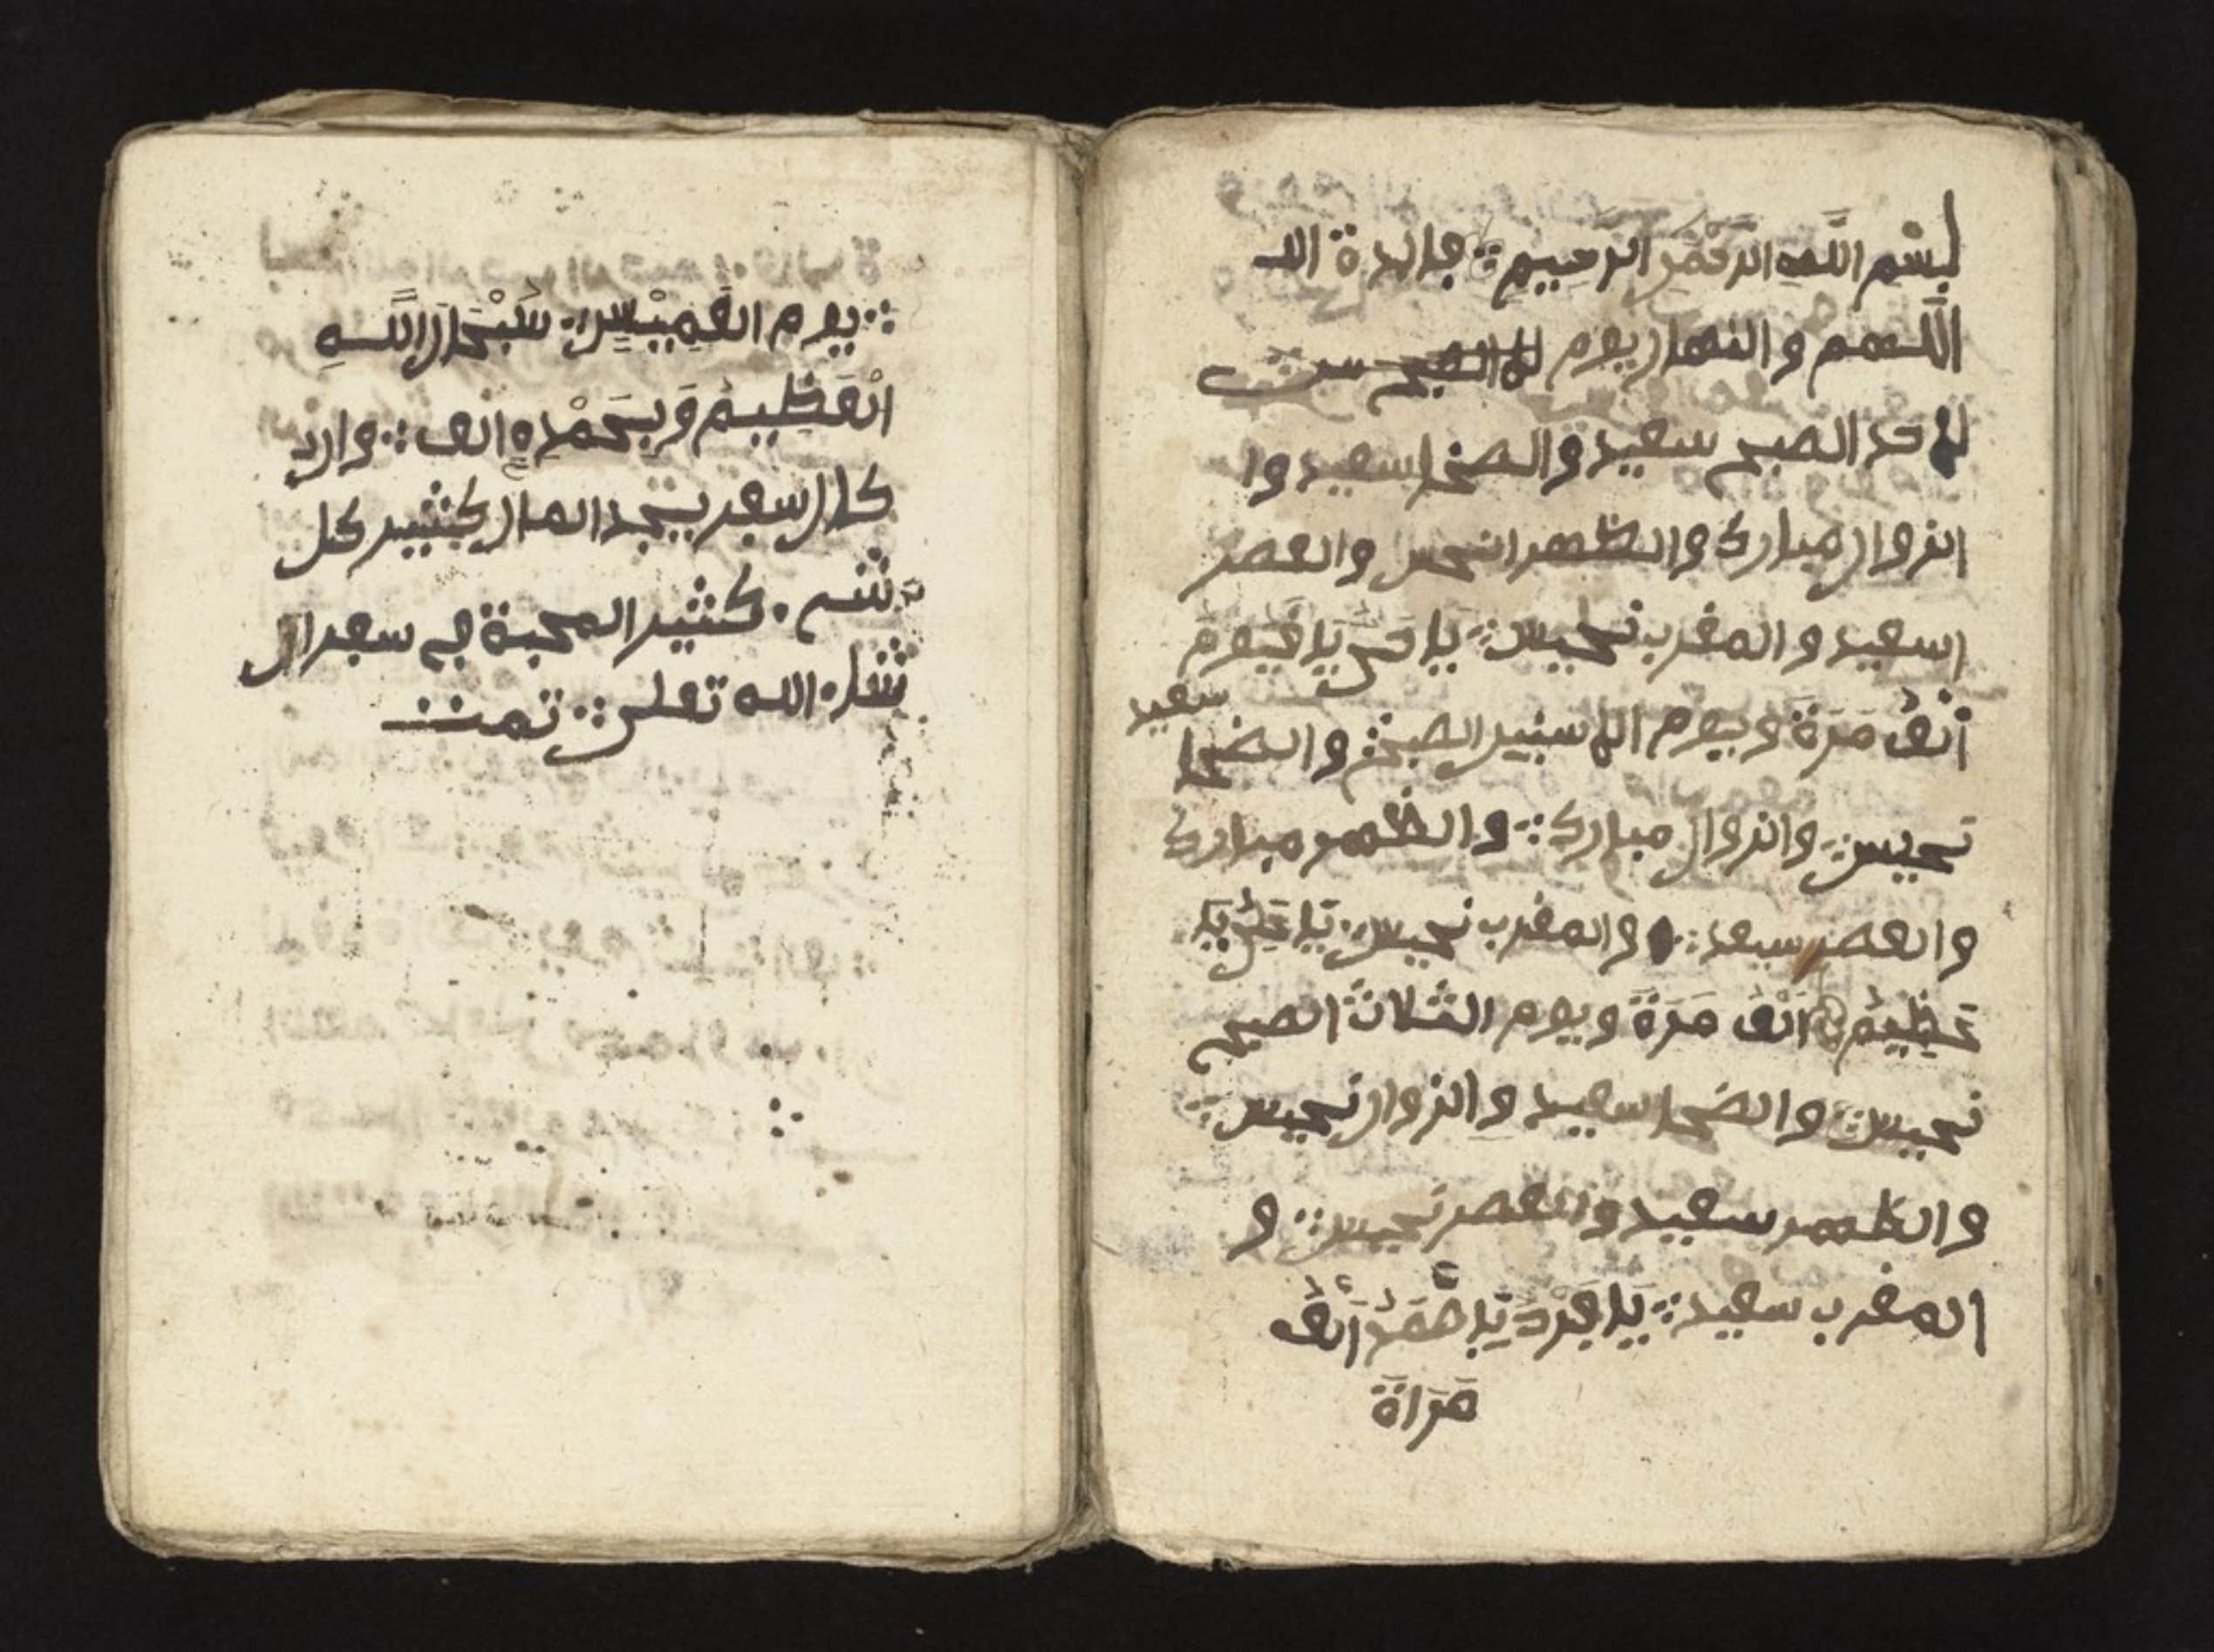 بِسْمِ اللَّهِ الرَّحْمَٰنِ الرَّحِيمِ ∴ فايدة الله
اللهم والنهار يوم
لاحد الصبح سعيد والضحا سعيد وا
الزوال مبارك والظهر النحس والعصر
اسعيد والمغرب نحيس ∴ يَا حَيُّ يَا قَيُّومُ
أَلْفُ مَرَةً ويوم الاسنين الصبح سعيد والضحا
نحيس ∴ والزوال مبارك ∴ والظهر مبارك
والعصر سيعد ∴ والمغرب نحيس ∴ يَا عَلِيُّ يَا
عَظِيمُ أَلْفُ مَرَةً ويوم الثلاث الصبح
نحيس ∴ والضحا سعيد والزوال نحيس ∴
والظهر سعيد والعصر نحيس ∴ و
المغرب سعيد ∴ يَا فَرْدُ يَا صَمَدُ أَلْفُ
مَرَاةً
∴ يوم الخَمِيْسِ ∴ سُبْحَانَ اللَّهِ
الْعَظِيمُ وَبِحَمْدِهِ الف ∴ وان
كان سفر يجد المال كثير كل
شيء . كثير المحبة في سفر ان
شاء الله تعلى ∴ تمت